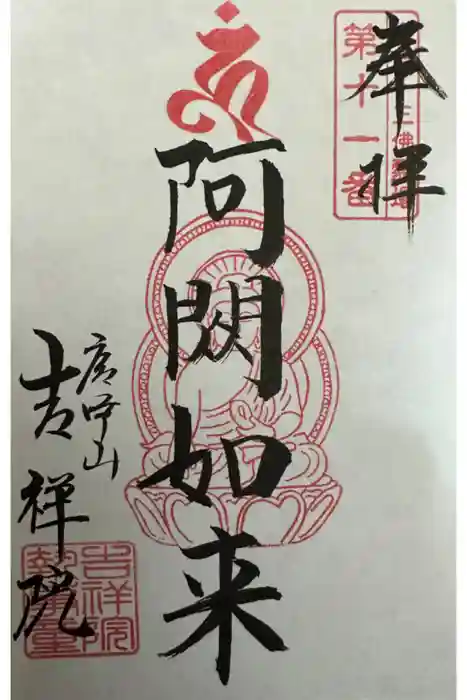 奉拝
第十一番
阿閦如来
吉祥院
吉祥院